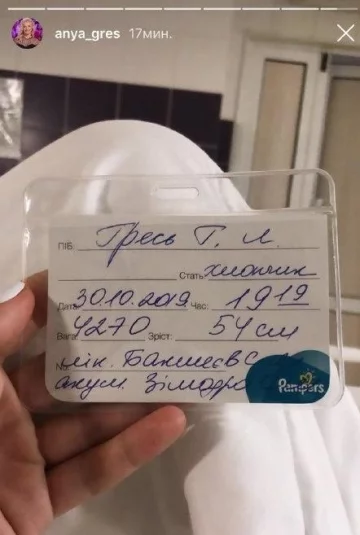 anya_gres 17мин.
ПІБ. Гресь Т. Л.
Стать: хлопчик
Дата: 30.10.2019 Час: 19 19
Вага: 4270 Зріст: 54 см
№ лік.
акуш.
Pampers